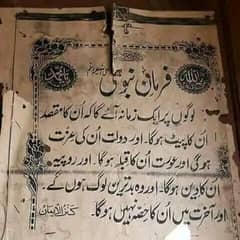 اللہ
محمد
فرمانِ نبوی
لوگوں پر ایک زمانہ آئے گا کہ اُن کا مقصد
اُن کا پیٹ ہوگا۔ اور دولت اُن کی عزت
ہوگی اور عورت اُن کا قبلہ ہوگا۔ اور روپیہ
اُن کا دین ہوگا۔ اور وہ بدترین لوگ ہوں گے
اور آخرت میں اُن کا حصہ نہیں ہوگا۔
کنزالاعمال